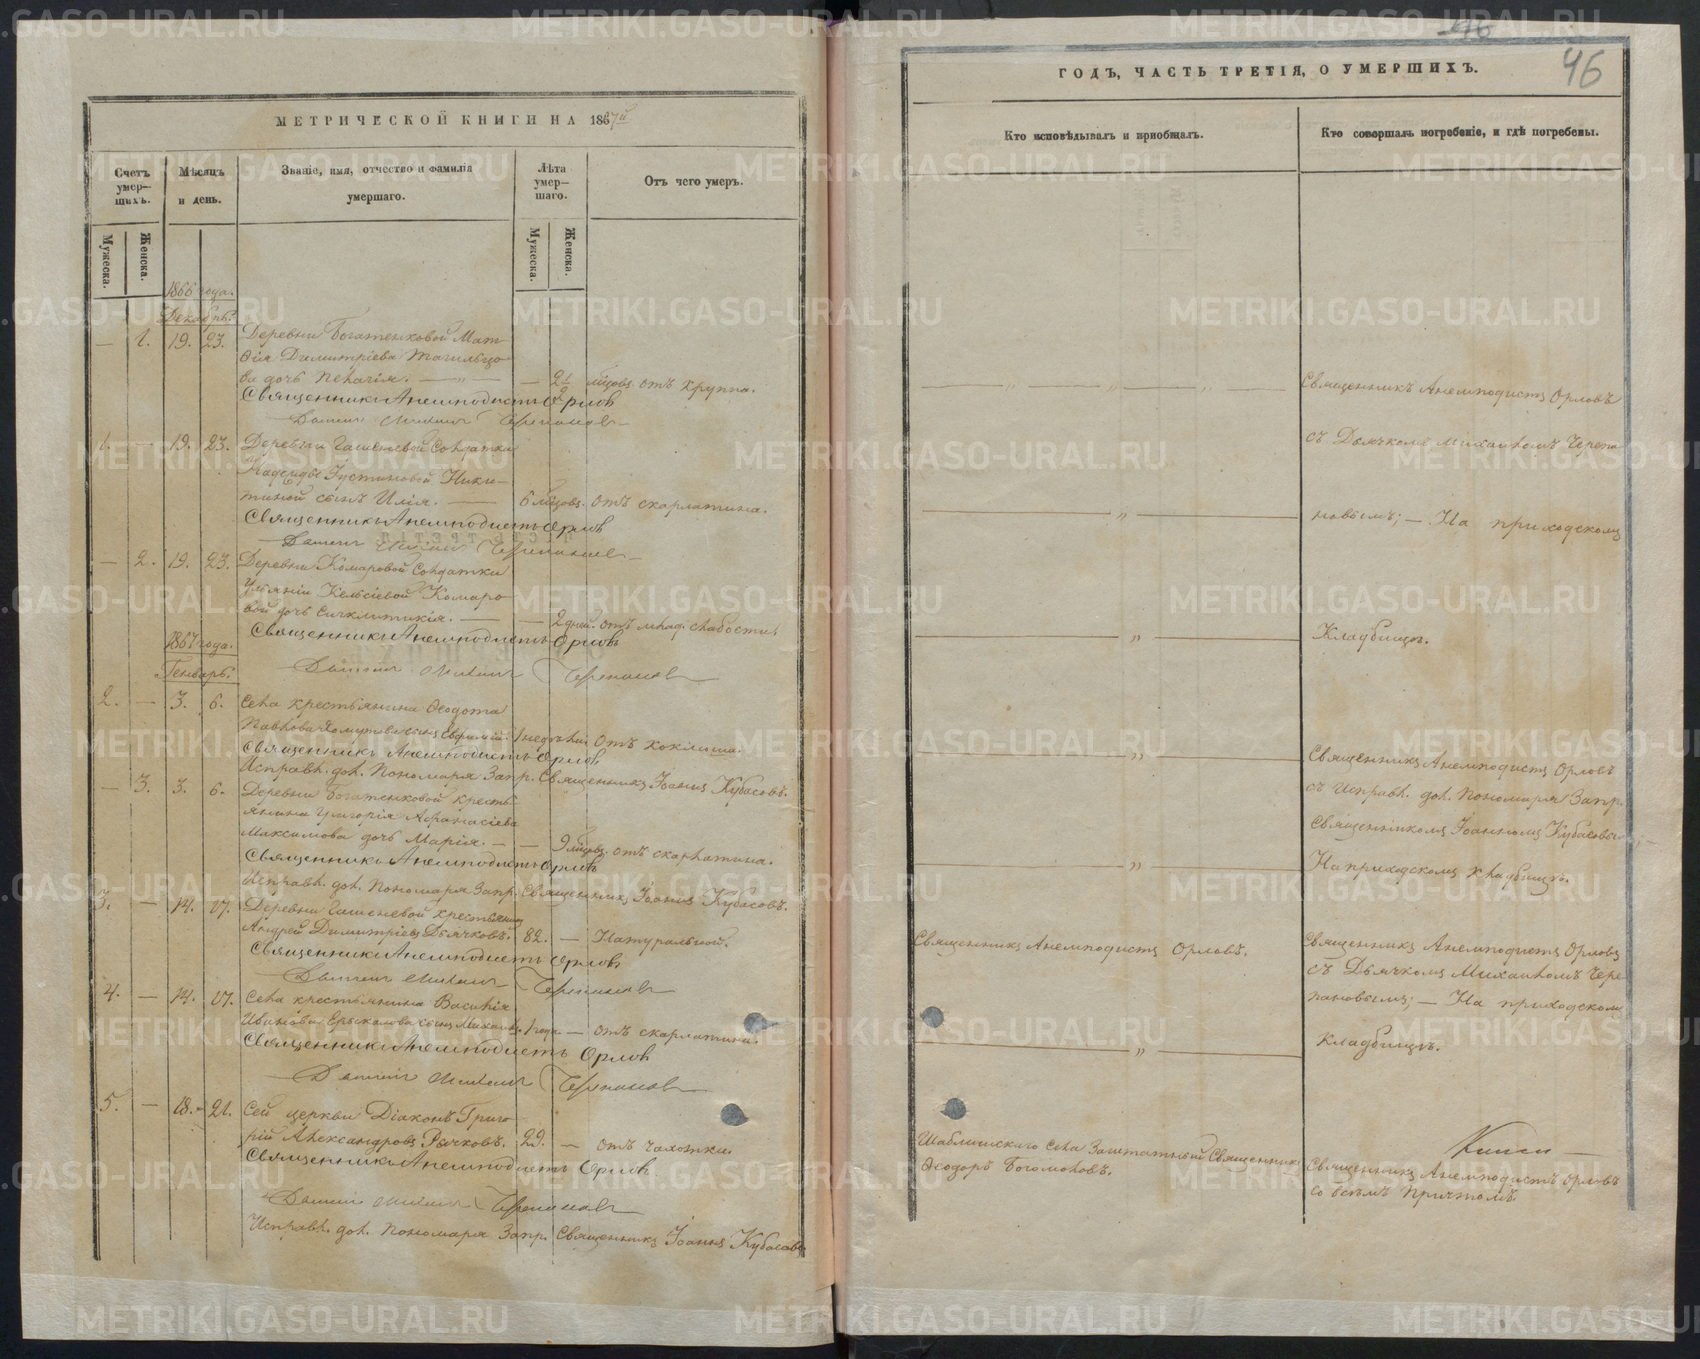 МЕТРИЧЕСКОЙ КНИГИ НА 1867й
Счетъ умер—шихъ.
Мѣсяцъ и день.
Званіе, имя, отчество и фамилія умершаго.
Лѣта умер—шаго.
Отъ чего умеръ.
Мужеска.
Женска.
Мужеска.
Женска.
1866 года.
Декабрь.
— 1. 19. 23. Деревни Богатенковой Мат-
ѳія Димитріева Тагильцо-
ва дочь Пелагія. — 2½ мѣсяц. отъ круппа.
Священникъ Анемподистъ Орловъ
Дьячекъ Михаилъ Черепановъ
1. — 19. 23. Деревни Гашеневой Солдатки
Надежды Іустиновой Ники-
тиной сынъ Илія. — 6 мѣсяц. отъ скарлатина.
Священникъ Анемподистъ Орловъ
Дьячекъ Михаилъ Черепановъ
— 2. 19. 23. Деревни Комаровой Солдатки
Ульяніи Кельсіевой Комаро-
вой дочь Синклитикія. — 2 дней. отъ млад. слабости.
Священникъ Анемподистъ Орловъ
1867 года.
Генварь.
Дьячекъ Михаилъ Черепановъ
2. — 3. 6. Села крестьянина Ѳеодота
Павлова Хомутова сынъ Евфимій. 1 недѣли отъ коклюша.
Священникъ Анемподистъ Орловъ
Исправл. дол. Пономаря Запр. Священникъ Іоаннъ Кубасовъ.
— 3. 3. 6. Деревни Богатенковой кресть-
янина Григорія Аѳанасіева
Максимова дочь Марія. — — 9 мѣсяц. отъ скарлатина.
Священникъ Анемподистъ Орловъ
Исправл. дол. Пономаря Запр. Священникъ Іоаннъ Кубасовъ.
3. — 14. 17. Деревни Гашеневой крестьянинъ
Андрей Димитріевъ Дьячковъ. 82. — Натуральной.
Священникъ Анемподистъ Орловъ
Дьячекъ Михаилъ Черепановъ
4. — 14. 17. Села крестьянина Василія
Иванова Ерыкалова сынъ Михаилъ. 1 года — отъ скарлатина.
Священникъ Анемподистъ Орловъ
Дьячекъ Михаилъ Черепановъ
5. — 18. 21. Сей церкви Діаконъ Григо-
рій Александровъ Рычковъ. 29. — отъ чахотки.
Священникъ Анемподистъ Орловъ
Дьячекъ Михаилъ Черепановъ
Исправл. дол. Пономаря Запр. Священникъ Іоаннъ Кубасовъ
46
46
ГОДЪ, ЧАСТЬ ТРЕТІЯ, О УМЕРШИХЪ.
Кто исповѣдывалъ и пріобщалъ.
Кто совершалъ погребеніе, и гдѣ погребены.
Священникъ Анемподистъ Орловъ
съ Дьячкомъ Михаиломъ Черепа-
новымъ; — На приходскомъ
Кладбищѣ.
Священникъ Анемподистъ Орловъ
съ Исправл. дол. Пономаря Запр.
Священникомъ Іоанномъ Кубасовымъ; —
На приходскомъ кладбищѣ.
Священникъ Анемподистъ Орловъ.
Священникъ Анемподистъ Орловъ
съ Дьячкомъ Михаиломъ Чере-
пановымъ; — На приходскомъ
кладбищѣ.
Шаблишскаго Села Заштатный Священникъ
Ѳеодоръ Богомоловъ.
Священникъ Анемподистъ Орловъ
со всѣмъ Причтомъ.
METRIKI.GASO-URAL.RU